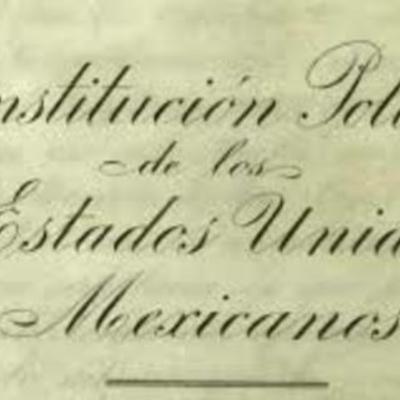 nstitución Polí
de los
Estados Unid
Mexicanos